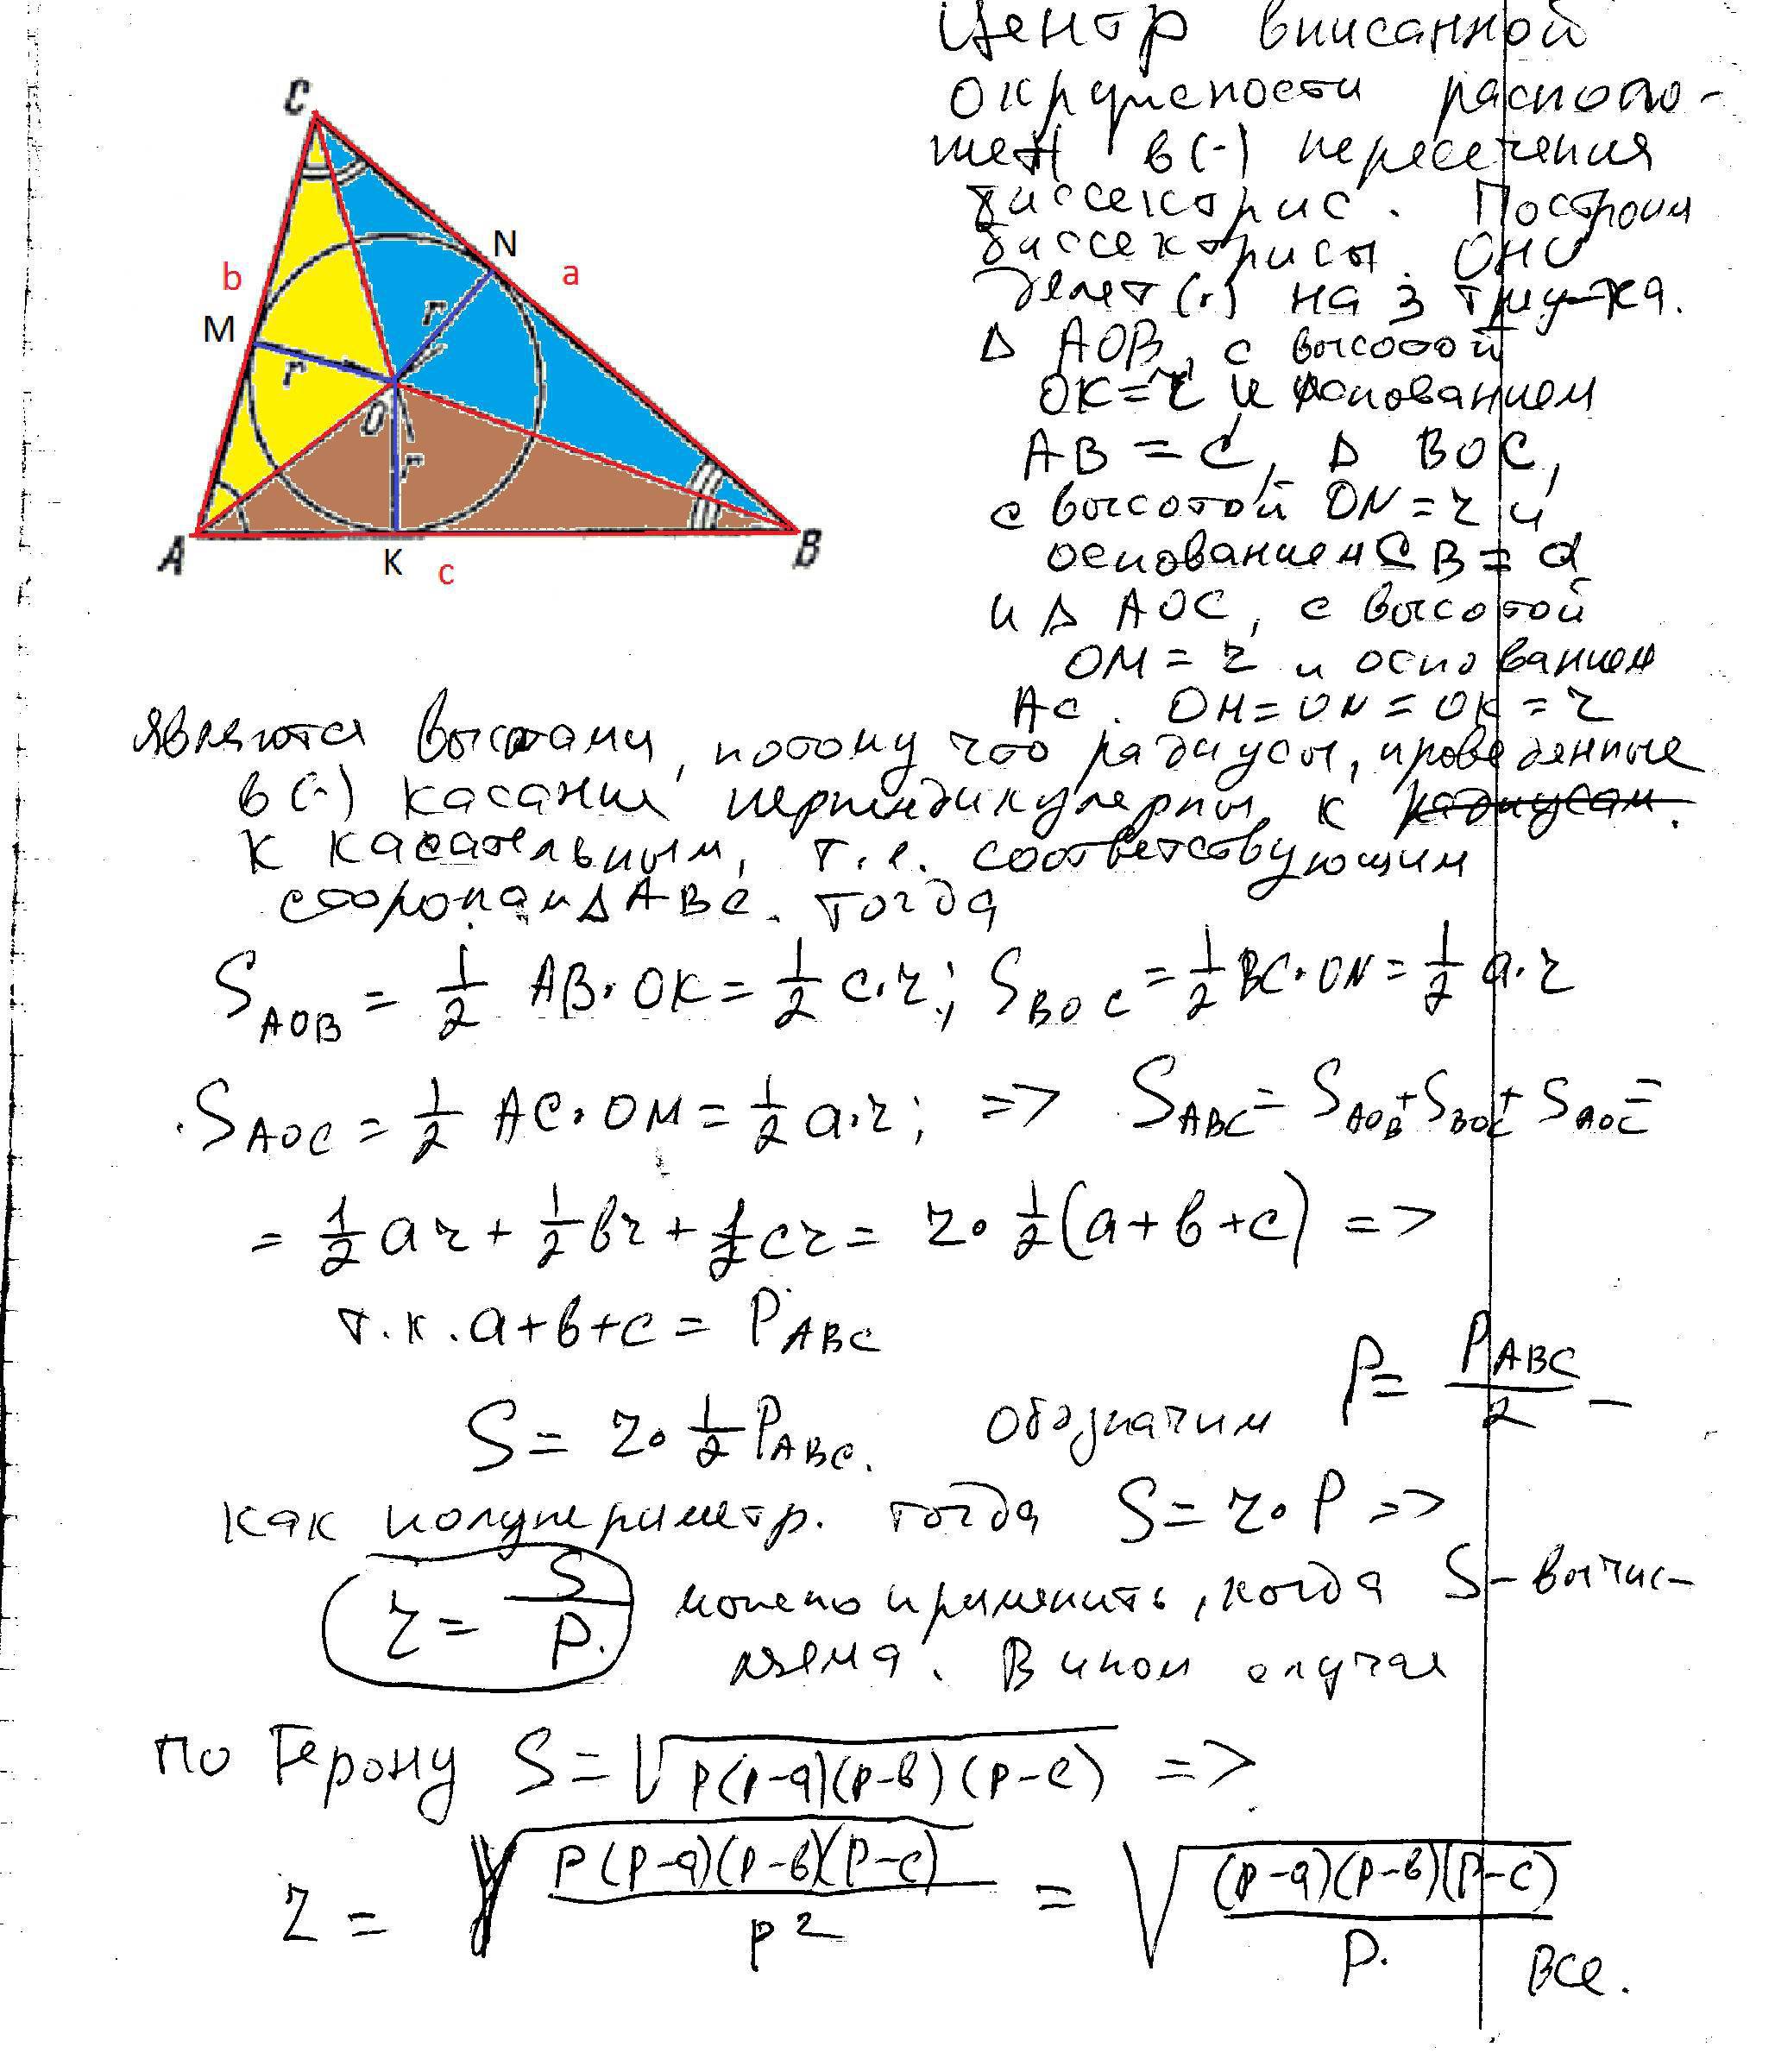 Центр вписанной
окружности располо-
жен в (·) пересечения
биссектрис. Построим
биссектрисы. Они
делят (·) на 3 треу-ка.
Δ AOB, с высотой
OK = r и основанием
AB = c, Δ BOC,
с высотой ON = r и
основанием CB = a
и Δ AOC, с высотой
OM = r и основанием
AC. OM = ON = OK = r
C
N
b
a
M
r
r
O
r
A
K
c
B
являются высотами, потому что радиусы, проведенные
в (·) касания перпендикулярны к радиусам.
к касательным, т.е. соответствующим
сторонам Δ ABC. Тогда
S_AOB = 1/2 AB · OK = 1/2 c · r; S_BOC = 1/2 BC · ON = 1/2 a · r
S_AOC = 1/2 AC · OM = 1/2 a · r; => S_ABC = S_AOB + S_BOC + S_AOC =
= 1/2 ar + 1/2 br + 1/2 cr = r · 1/2 (a + b + c) =>
т.к. a + b + c = P_ABC
S = r · 1/2 P_ABC. Обозначим p = P_ABC/2 –
как полупериметр. Тогда S = r · p =>
r = S/p. можно применить, когда S – вычис-
ляема. В ином случае
по Герону S = √(p(p-a)(p-b)(p-c)) =>
r = √(p(p-a)(p-b)(p-c)/p²) = √((p-a)(p-b)(p-c)/p). Все.